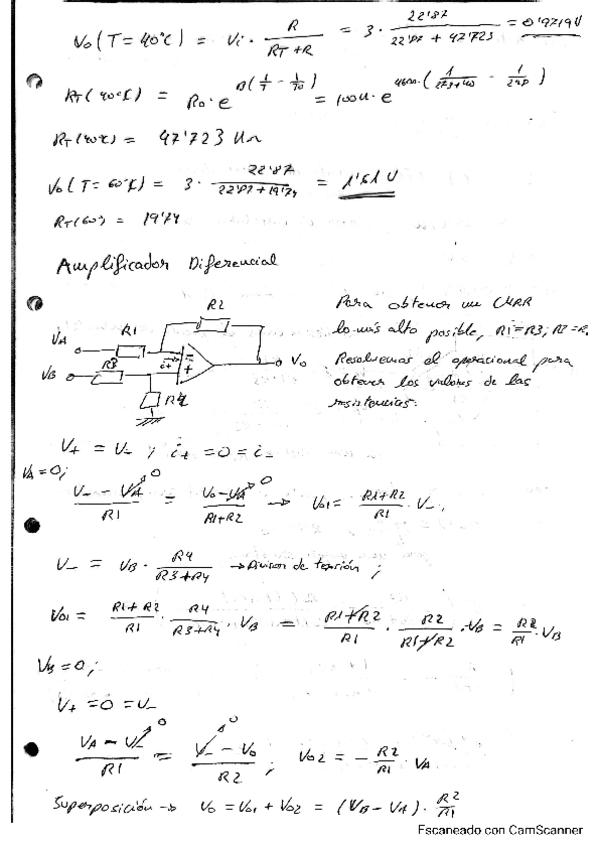 Vo(T=40ºC) = Vi · R / (RT+R) = 3 · 22'87 / (22'87 + 47'723) = 0'9719V
RT(40ºC) = Ro · e^(B(1/T - 1/To)) = 100K · e^(4600·(1/(273+40) - 1/298))
RT(40ºC) = 47'723 KΩ
Vo(T=60ºC) = 3 · 22'87 / (22'87+19'74) = 1'61 V
RT(60º) = 19'74
Amplificador Diferencial
R2
VA R1
VB R3
- + Vo
R4
Para obtener un CMRR
lo más alto posible, R1=R3; R2=R
Resolvemos el operacional para
obtener los valores de las
resistencias.
V+ = V- ; i+ = 0 = i-
VA=0;
(V- - VA) / R1 = (Vo - VA) / (R1+R2) → Vo1 = (R1+R2) / R1 · V-,
V- = VB · R4 / (R3+R4) → Divisor de tensión ;
Vo1 = (R1+R2) / R1 · R4 / (R3+R4) · VB = (R1+R2) / R1 · R2 / (R1+R2) · VB = R2 / R1 · VB
VB=0;
V+ = 0 = V-
(VA - V-) / R1 = (V- - Vo) / R2 ; Vo2 = - R2 / R1 · VA
Superposición → Vo = Vo1 + Vo2 = (VB - VA) · R2 / R1
Escaneado con CamScanner